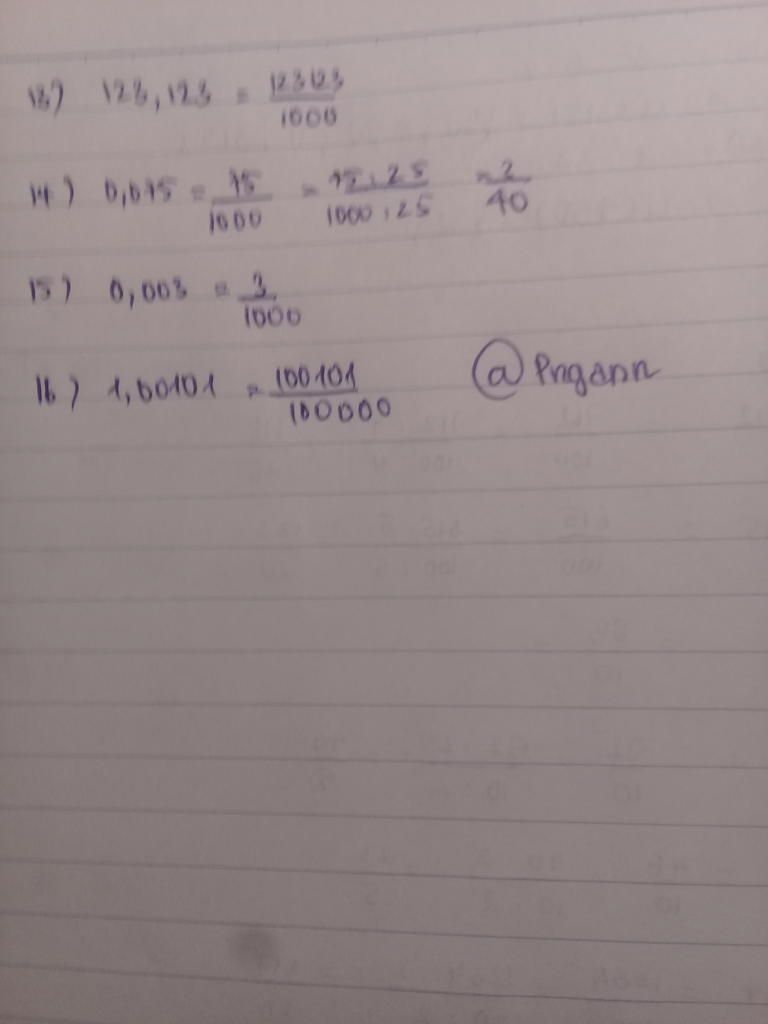 13) 123,123 = 123123/1000
14) 0,075 = 75/1000 = 75:25/1000:25 = 3/40
15) 0,003 = 3/1000
16) 1,00101 = 100101/100000 @Pngann